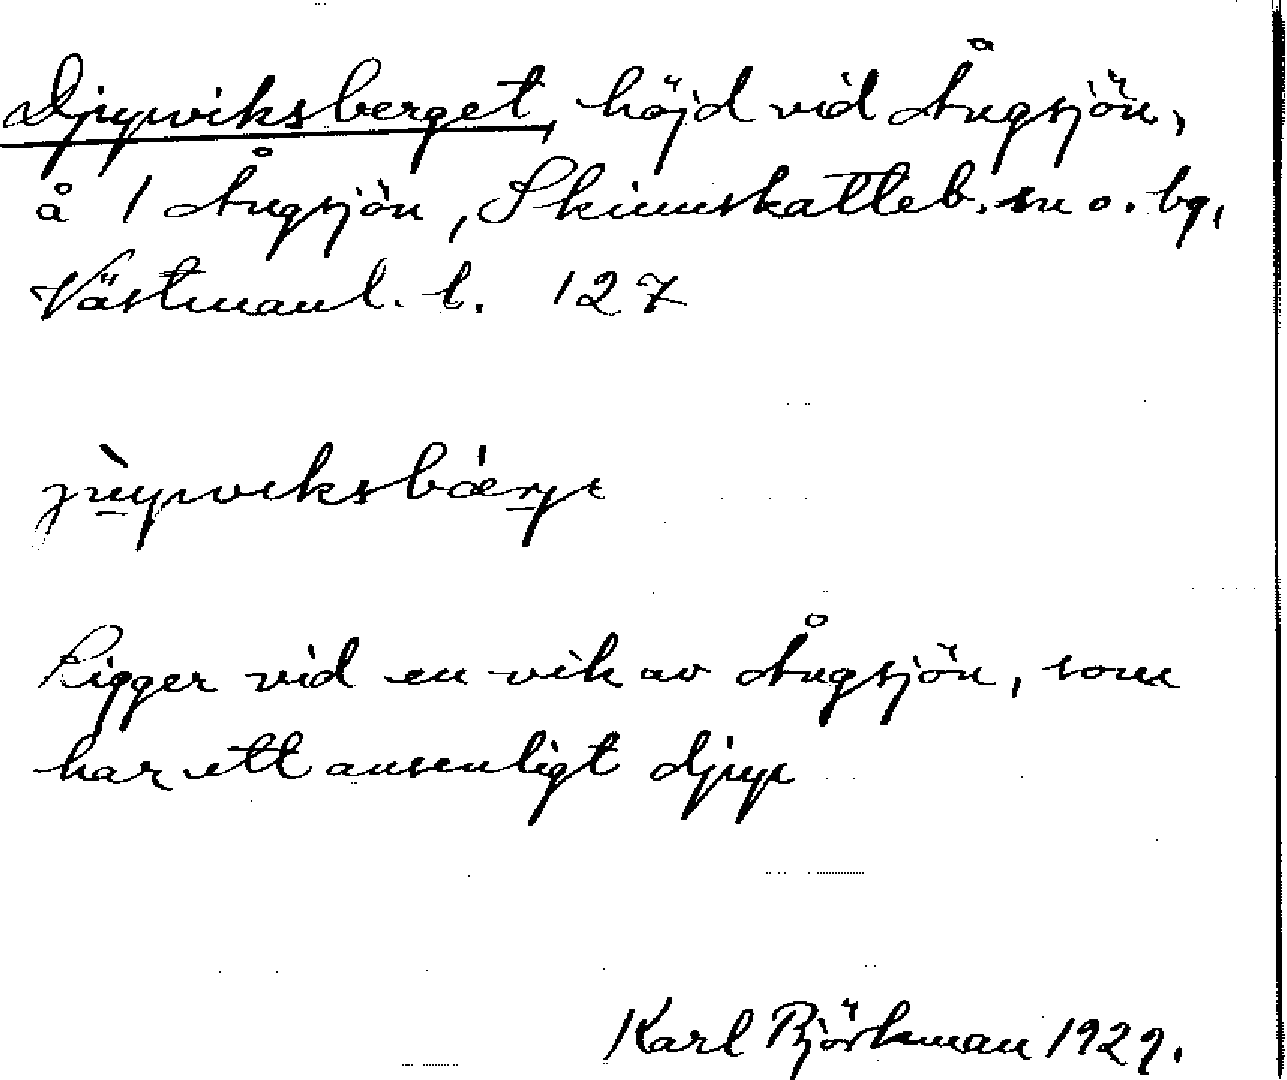 Djupviksberget, höjd vid Ångsjön,
å 1 Ångsjön, Skinnskatteb. sn o. bg,
Västmanl. l. 127
jùpviksbǽrje
Ligger vid en vik av Ångsjön, som
har ett ansenligt djup
Karl Björkman 1929.